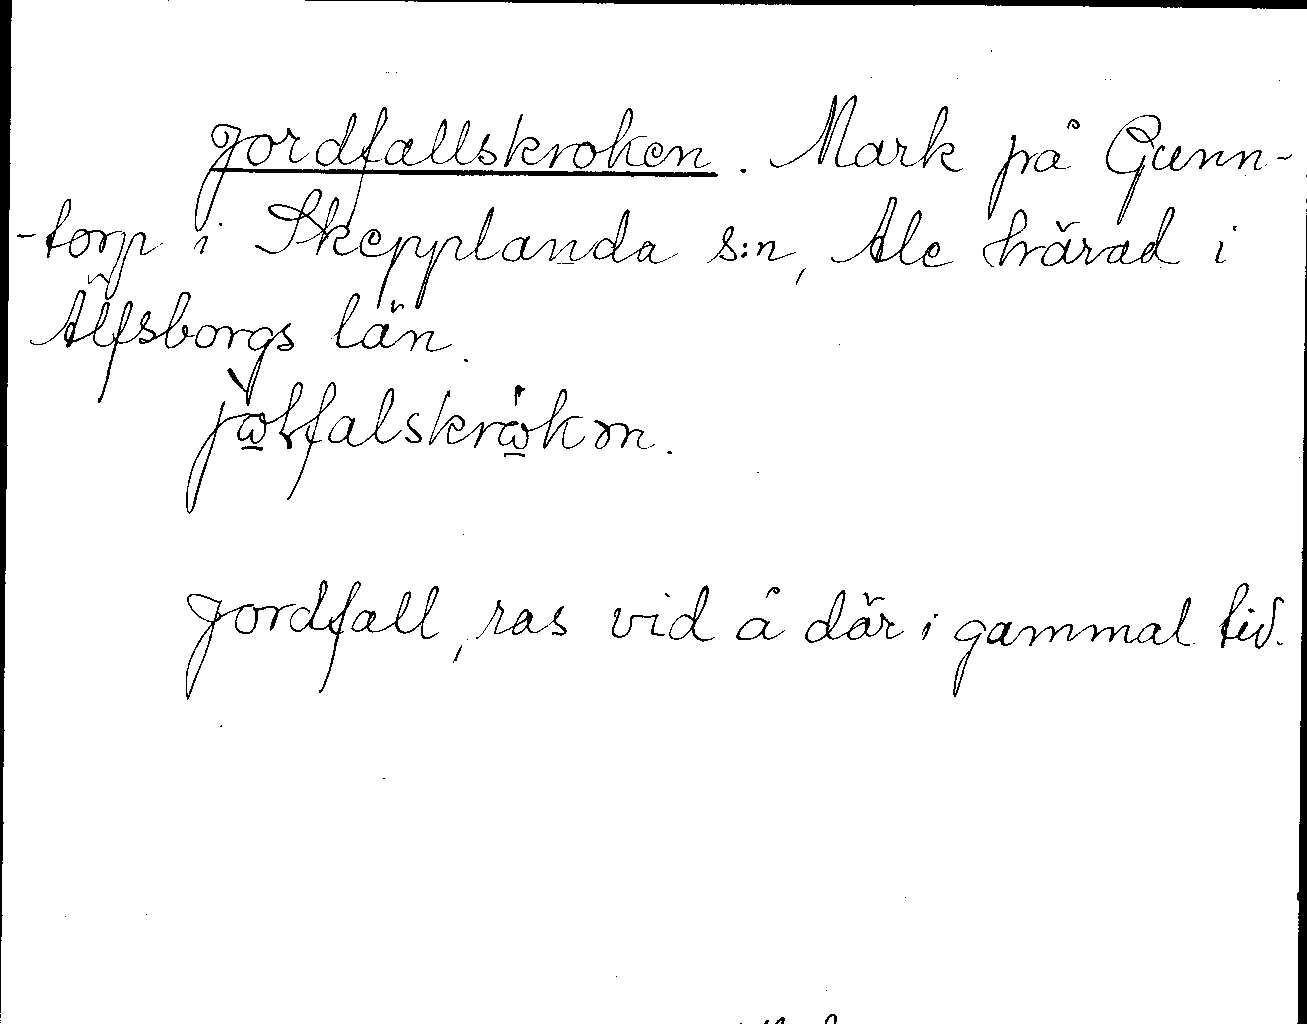 Jordfallskroken. Mark på Gunn-
-torp i Skepplanda s:n, Ale härad i
Älfsborgs län.
Jordfall, ras vid å där i gammal tid.